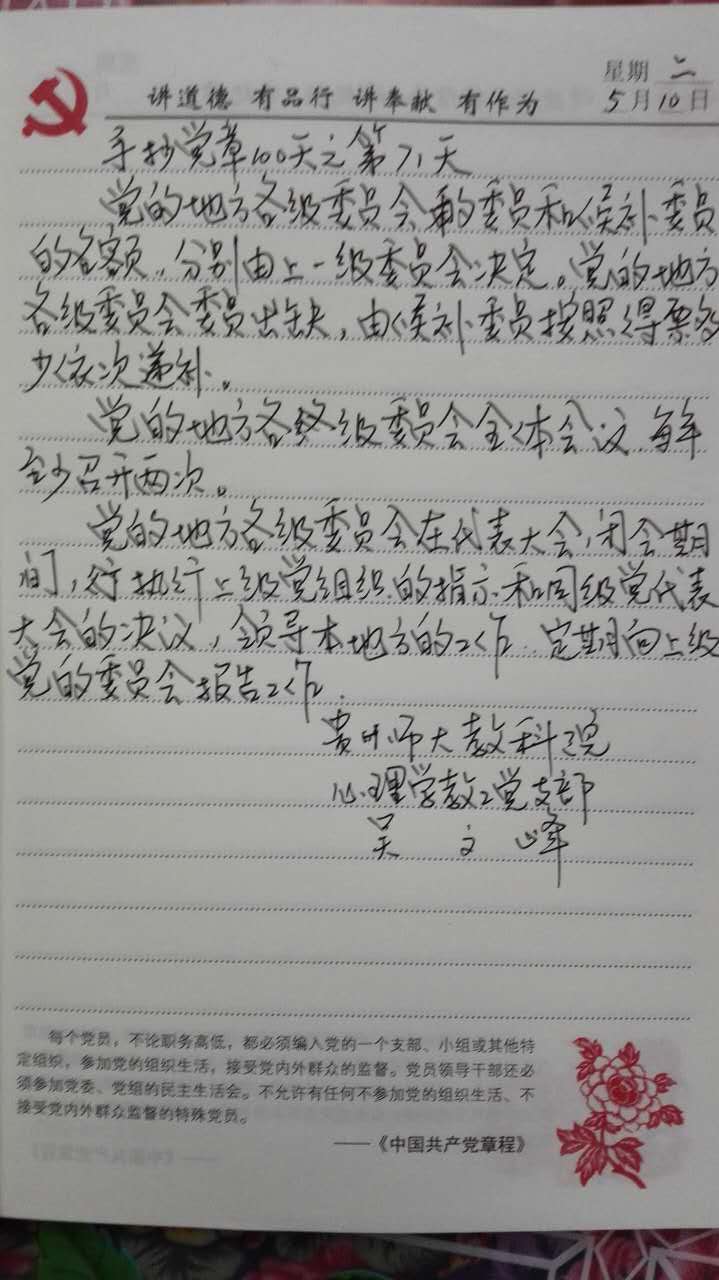 星期 二
讲道德 有品行 讲奉献 有作为 5月10日
手抄党章100天之第71天
党的地方各级委员会的委员和候补委员
的名额,分别由上一级委员会决定。党的地方
各级委员会委员出缺,由候补委员按照得票多
少依次递补。
党的地方各级委员会全体会议,每年
至少召开两次。
党的地方各级委员会在代表大会闭会期
间,执行上级党组织的指示和同级党代表
大会的决议,领导本地方的工作,定期向上级
党的委员会报告工作。
贵州师大教科院
心理学教工党支部
吴 文 峰
每个党员,不论职务高低,都必须编入党的一个支部、小组或其他特
定组织,参加党的组织生活,接受党内外群众的监督。党员领导干部还必
须参加党委、党组的民主生活会。不允许有任何不参加党的组织生活、不
接受党内外群众监督的特殊党员。
——《中国共产党章程》